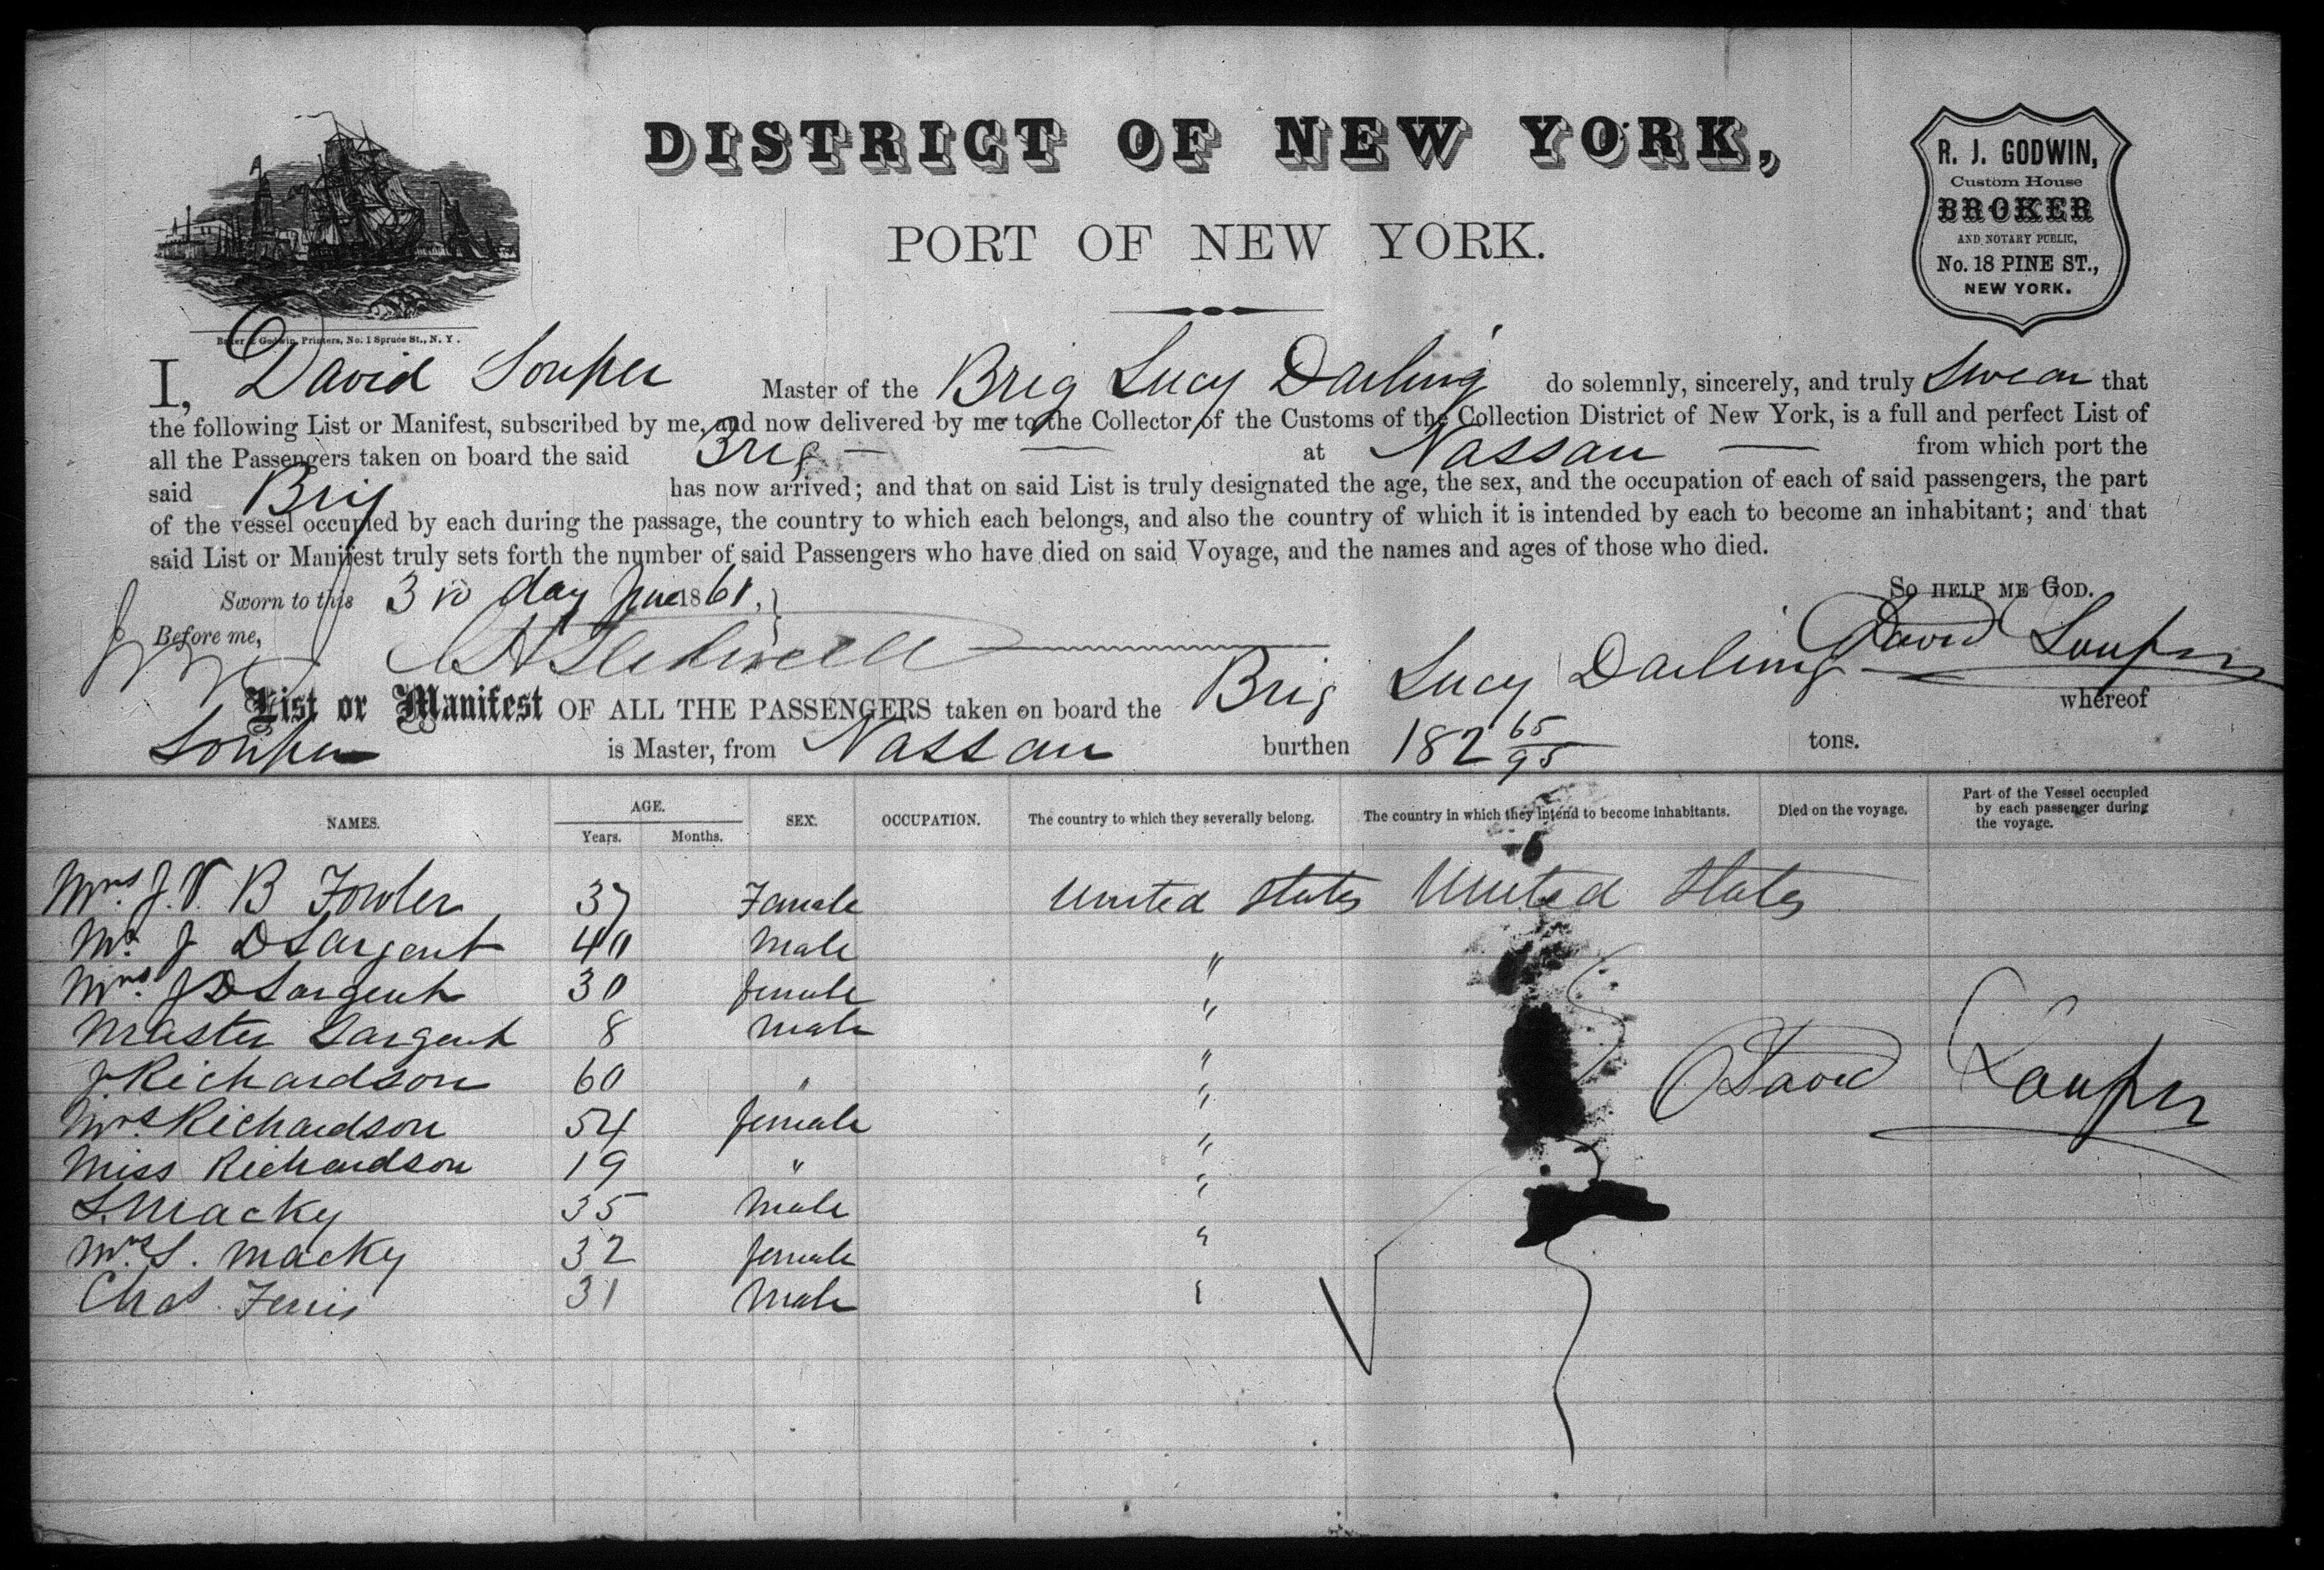 DISTRICT OF NEW YORK,
PORT OF NEW YORK.
R. J. GODWIN,
Custom House
BROKER
AND NOTARY PUBLIC,
No. 18 PINE ST.,
NEW YORK.
Baker & Godwin, Printers, No. 1 Spruce St., N. Y.
I, David Souper Master of the Brig Lucy Darling do solemnly, sincerely, and truly Swear that
the following List or Manifest, subscribed by me, and now delivered by me to the Collector of the Customs of the Collection District of New York, is a full and perfect List of
all the Passengers taken on board the said Brig — — at Nassau — from which port the
said Brig has now arrived; and that on said List is truly designated the age, the sex, and the occupation of each of said passengers, the part
of the vessel occupied by each during the passage, the country to which each belongs, and also the country of which it is intended by each to become an inhabitant; and that
said List or Manifest truly sets forth the number of said Passengers who have died on said Voyage, and the names and ages of those who died.
Sworn to this 3rd day June 1861. So help me God.
Before me, David Souper
List or Manifest OF ALL THE PASSENGERS taken on board the Brig Lucy Darling whereof
Souper is Master, from Nassau burthen 182 65/95 tons.
NAMES. AGE. Years. Months. SEX. OCCUPATION. The country to which they severally belong. The country in which they intend to become inhabitants. Died on the voyage. Part of the Vessel occupied by each passenger during the voyage.
Mrs. J. V. B Fowler 37 Female United States United States
Mr. J D Sargent 40 Male "
Mrs. J D Sargent 30 female "
Master Sargent 8 Male "
J Richardson 60 " "
Mrs Richardson 54 female "
Miss Richardson 19 " "
S. Macky 35 Male "
Mrs S. Macky 32 female "
Chas. Ferris 31 Male "
David Souper